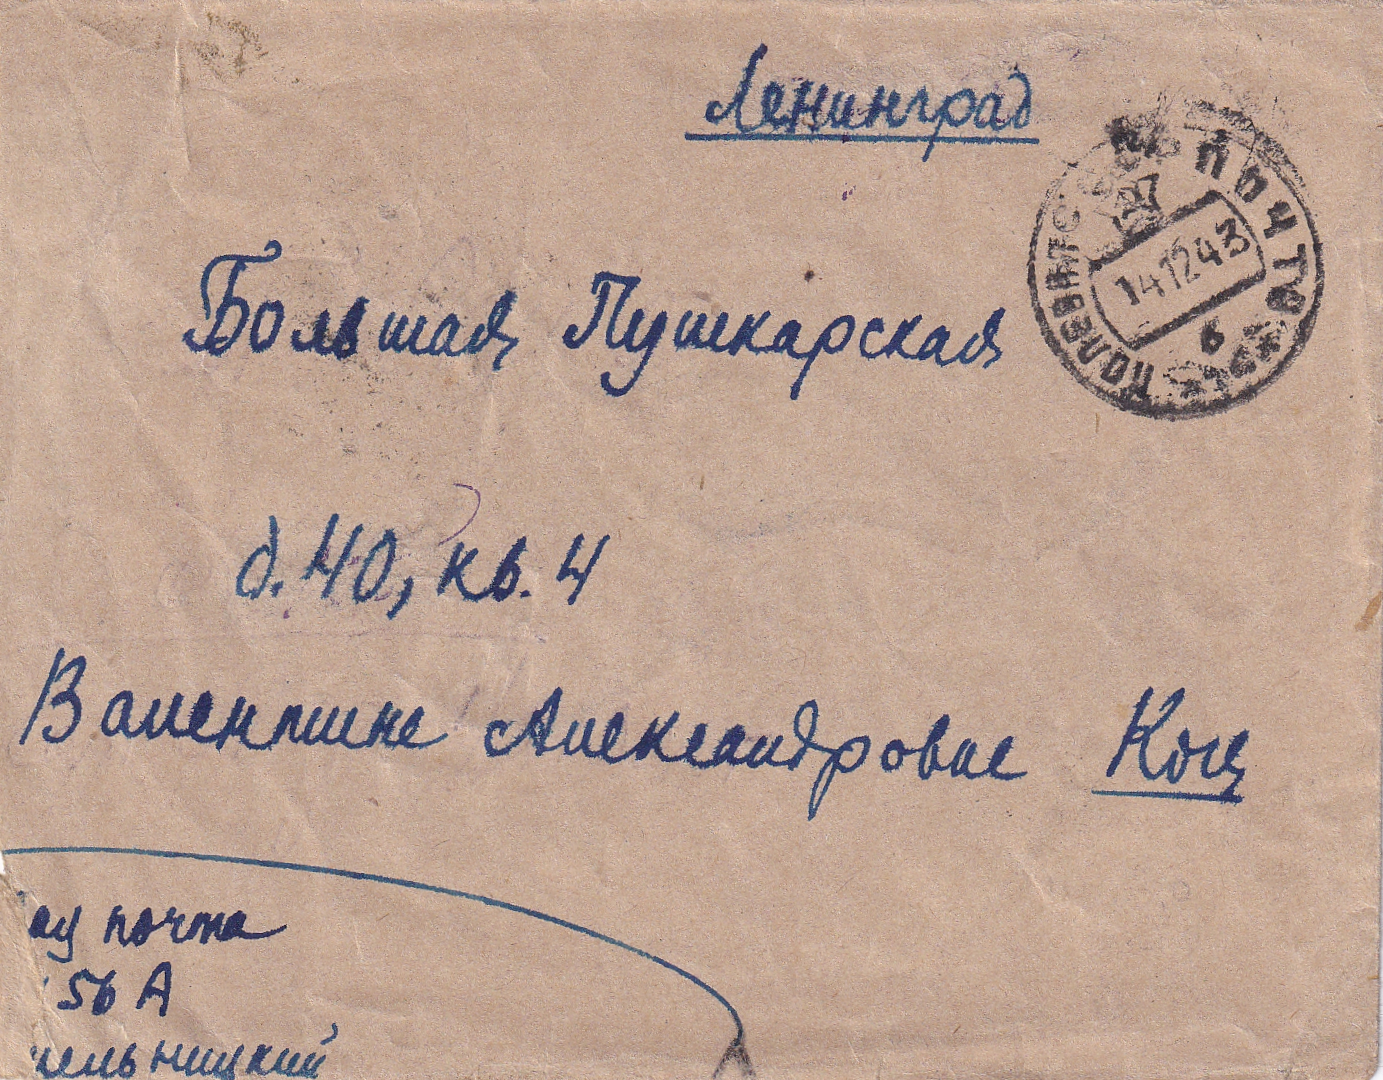 Ленинград
ПОЛЕВАЯ ПОЧТОВАЯ
14 12 43
б
Большая Пушкарская
д. 40, кв. 4
Валентине Александровне Коц
почта
56 А
ельницкий